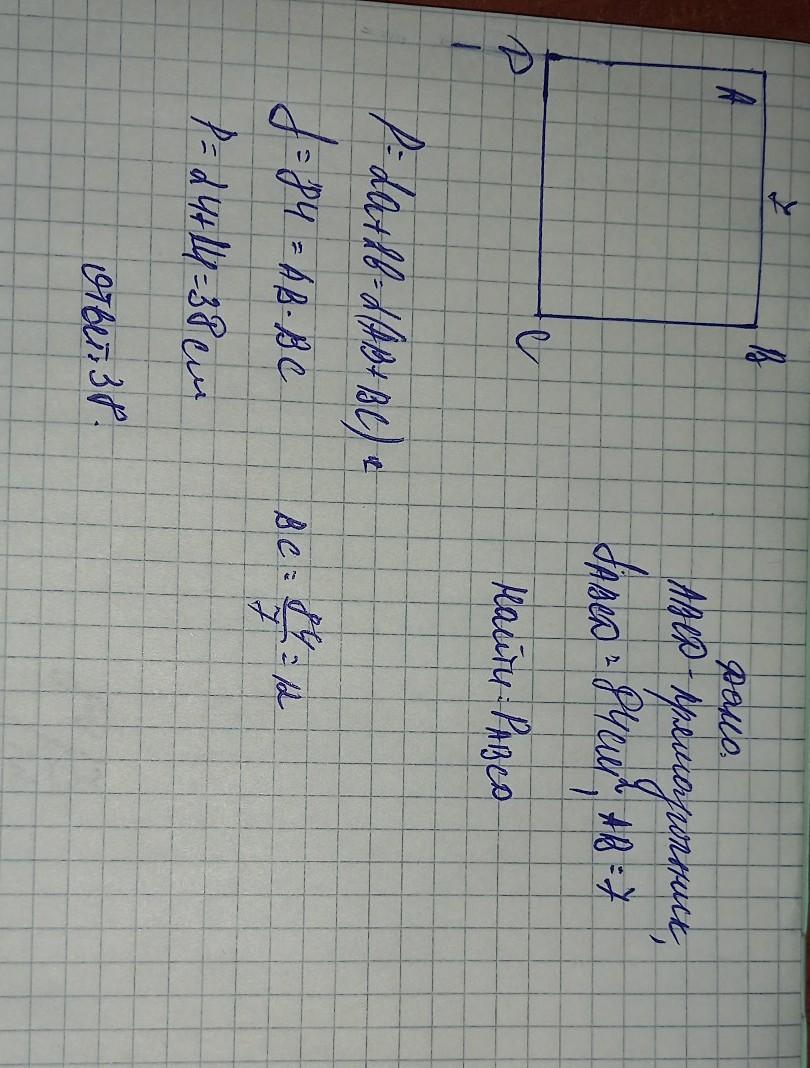 A 7 B
D C
Дано:
ABCD - прямоугольник,
SABCD = 84 см², AB = 7
Найти: PABCD
P = 2a + 2b = 2(AB + BC) =
S = 84 = AB · BC BC = 84/7 = 12
P = 24 + 14 = 38 см
Ответ: 38.